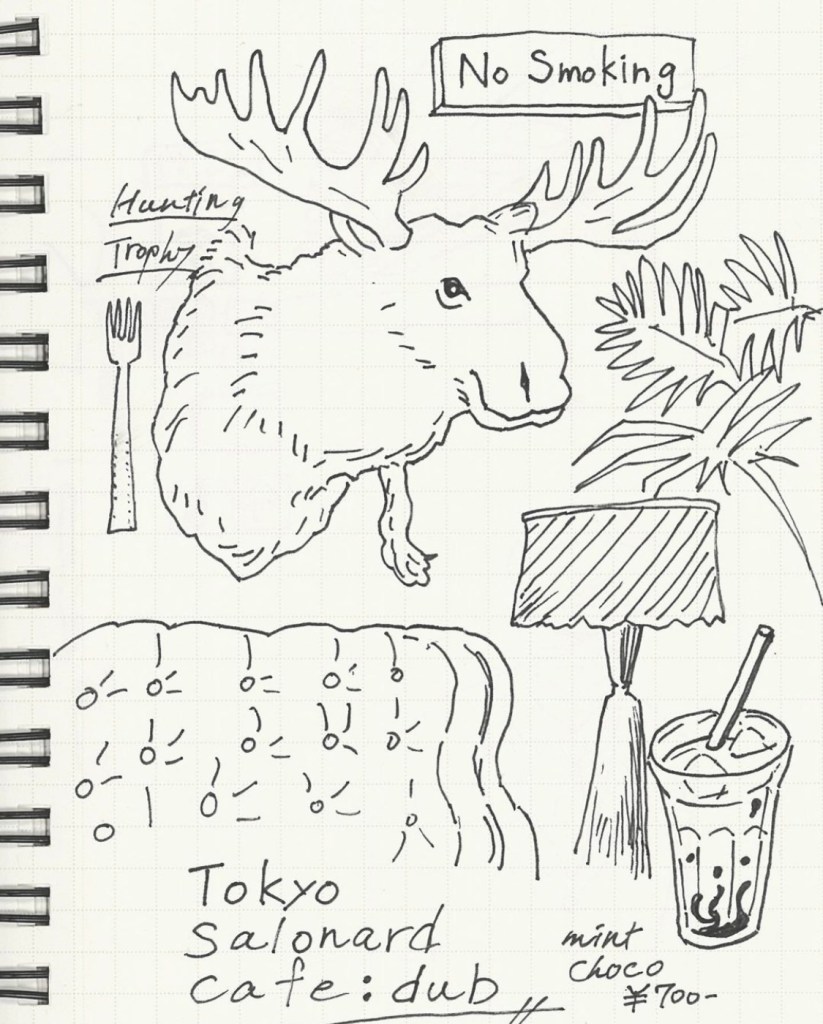 No Smoking
Hunting
Trophy
Tokyo
Salonard
cafe : dub
mint
choco
¥700-